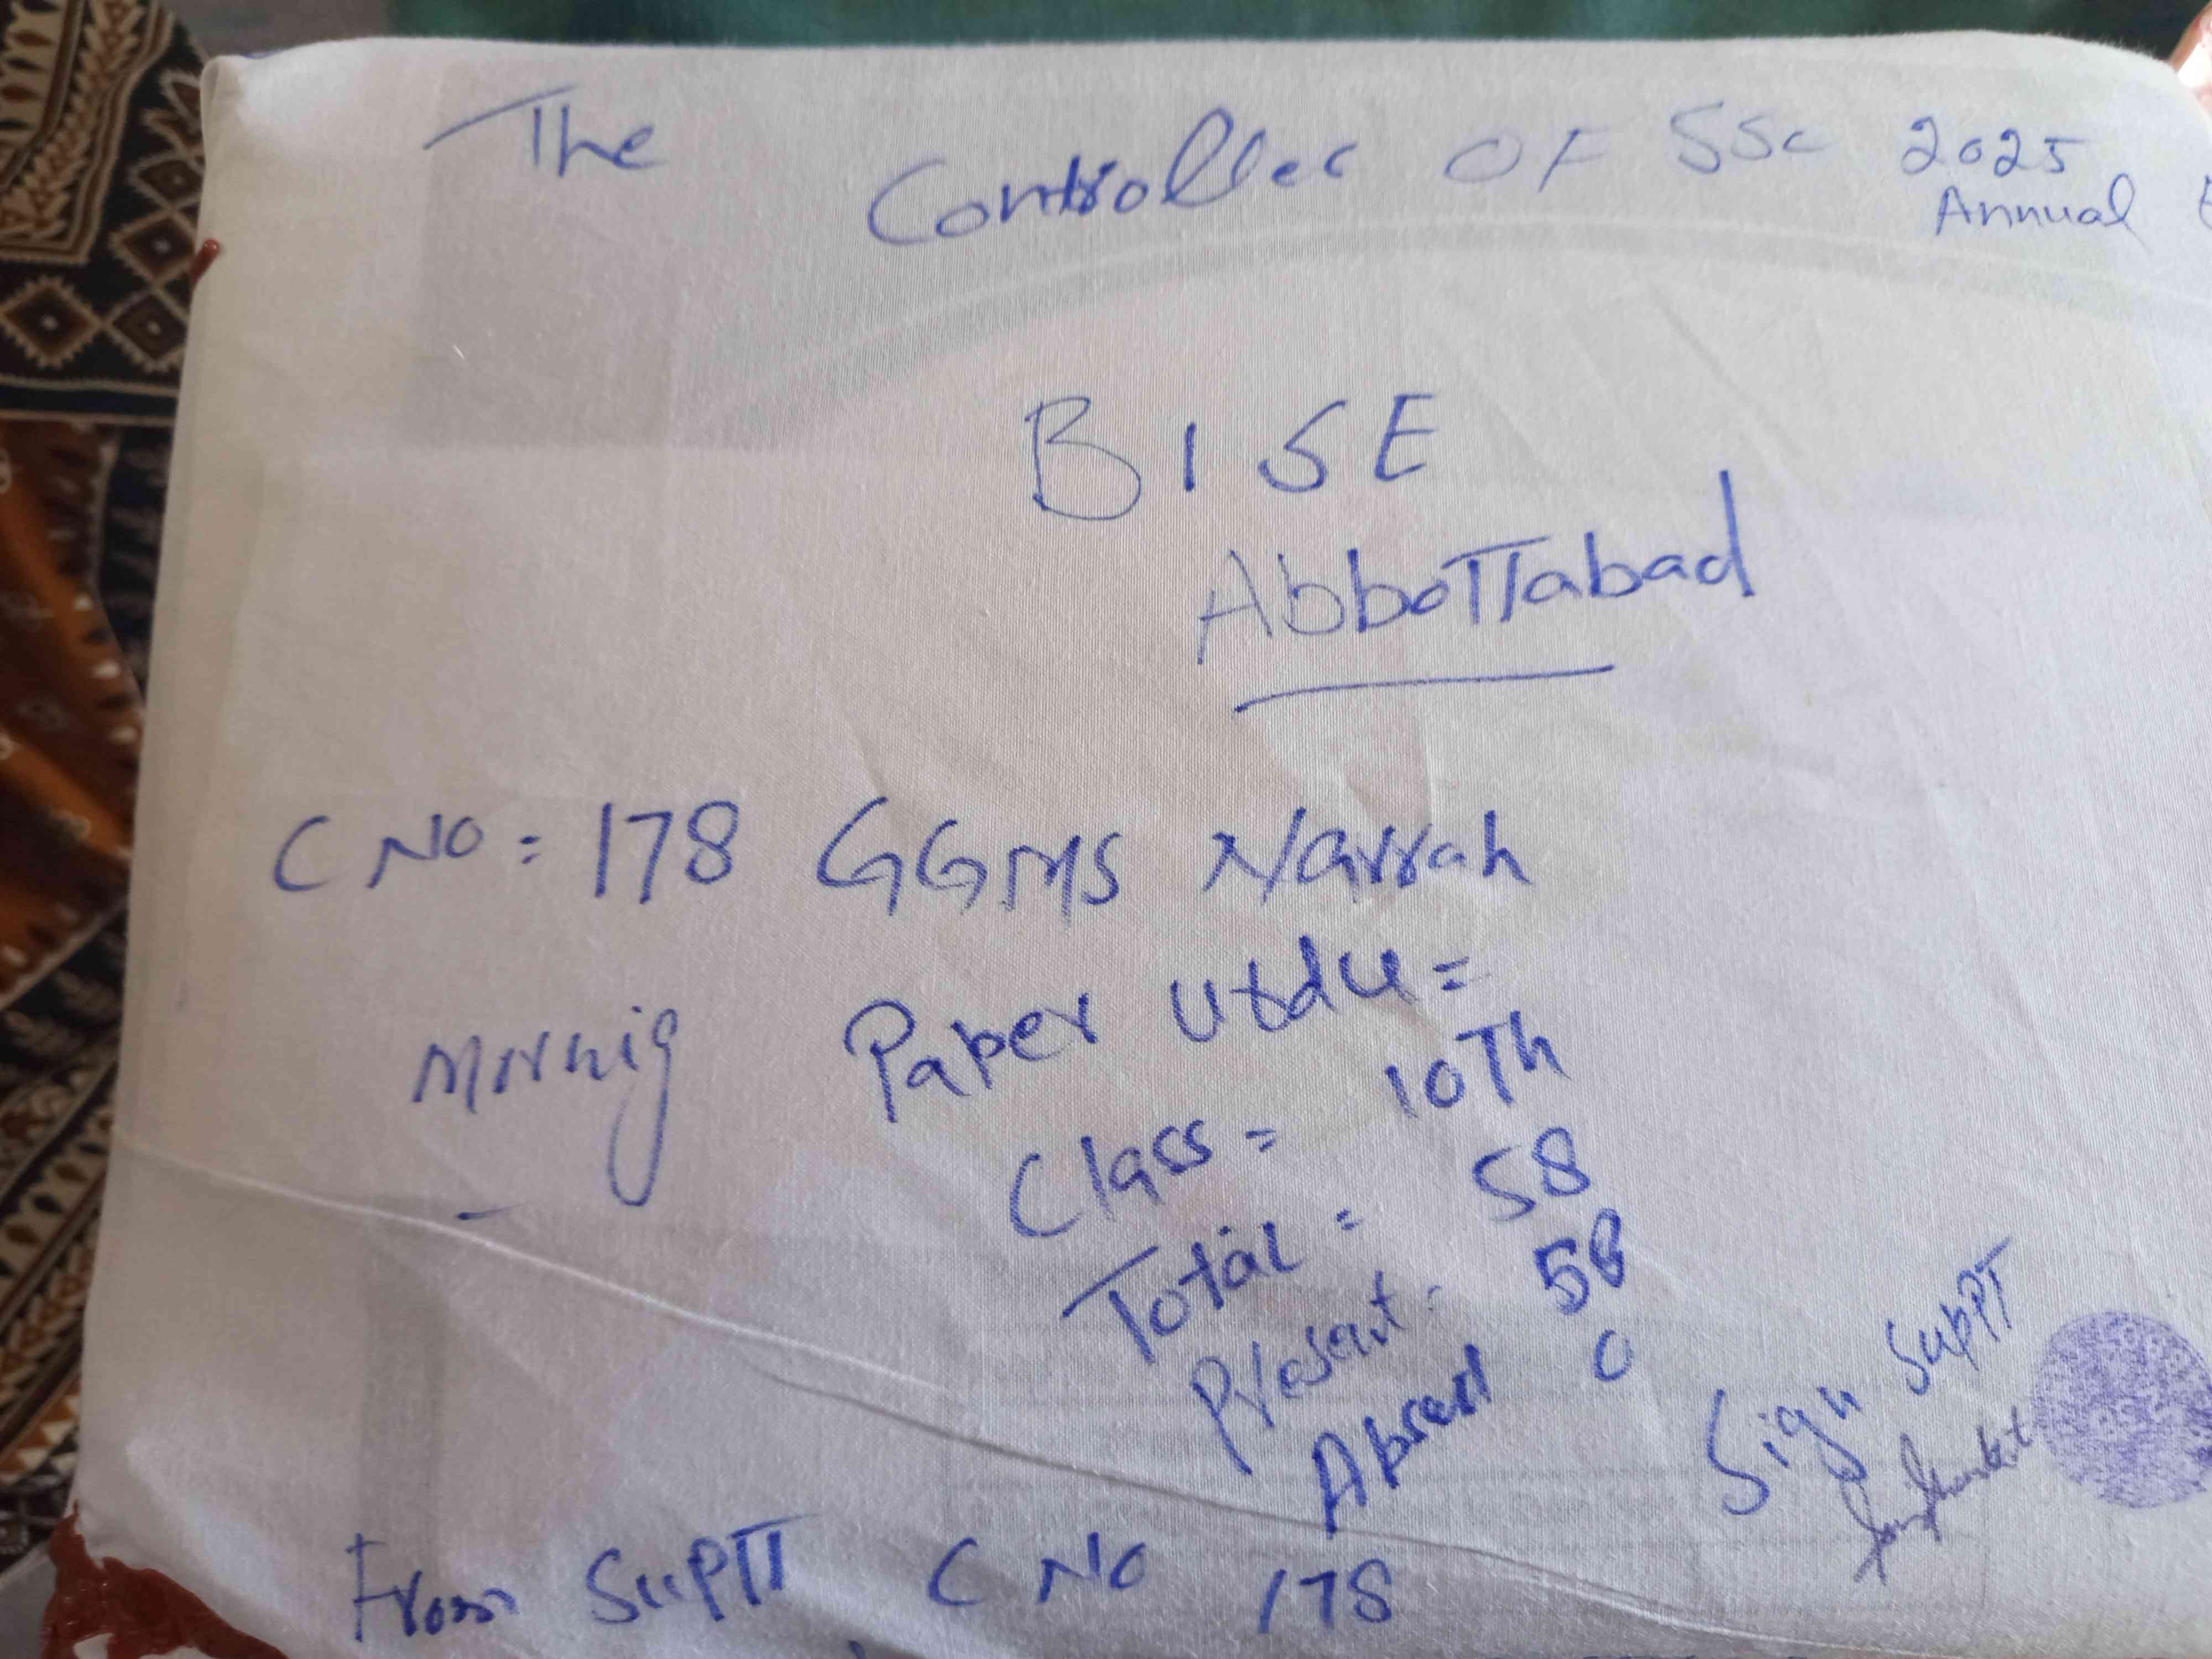 The Controller OF SSC 2025
Annual
BISE
Abbottabad
C NO = 178 GGMS Narrah
Mornig Paper Urdu =
Class = 10Th
Total = 58
Present = 58
Absent 0
Sign SupTT
From SupTT C NO 178